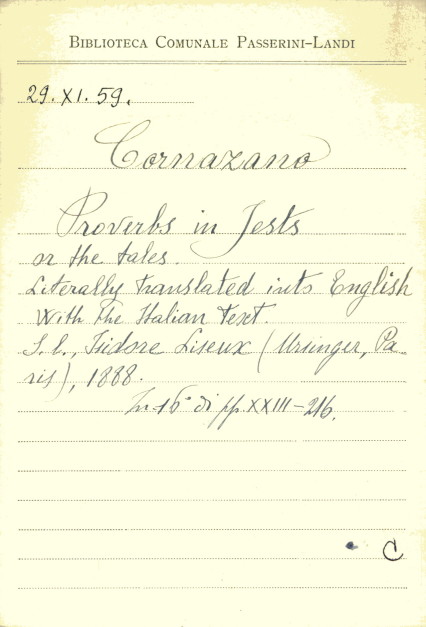 BIBLIOTECA COMUNALE PASSERINI-LANDI
29. XI. 59.
Cornazano
Proverbs in Jests
or the tales.
Literally translated into English
With the Italian Text.
S. l., Isidore Liseux (Ursinger, Pa-
ris), 1888.
In-16° di pp. XXIII-216.
C